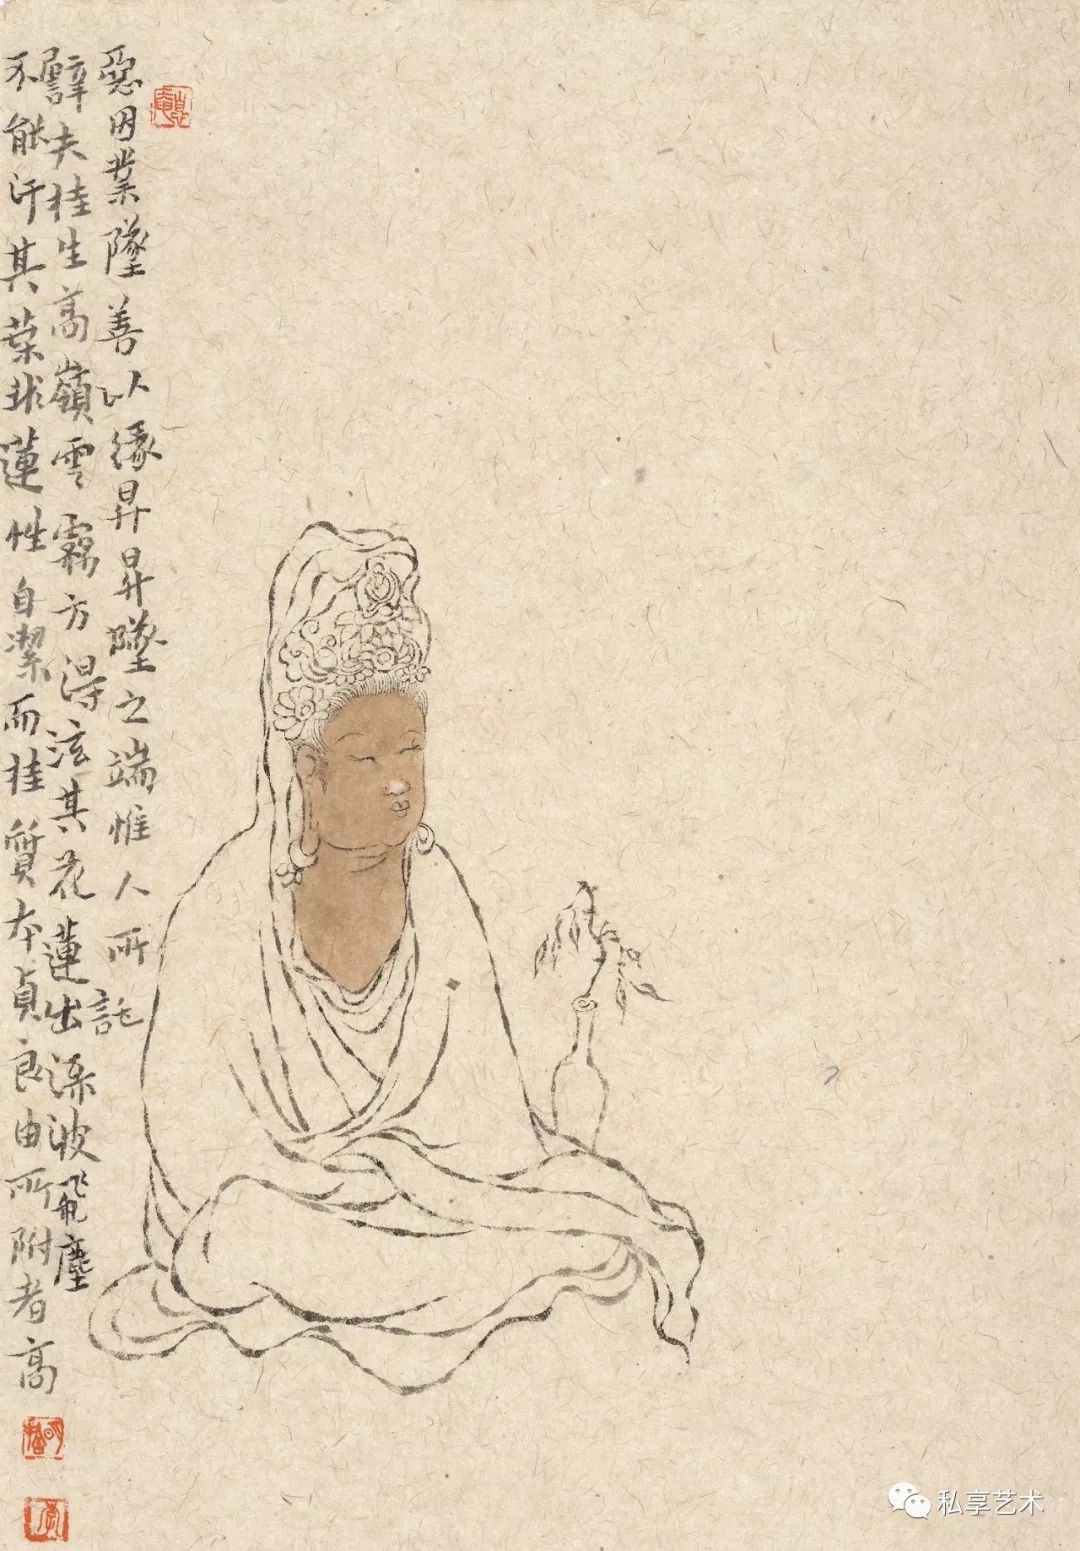 惡因業墜善以緣昇昇墜之端惟人所託
譬夫桂生高嶺雲霧方得泫其花蓮出淥波飛塵
不能汙其葉非蓮性自潔而桂質本貞良由所附者高
私享艺术